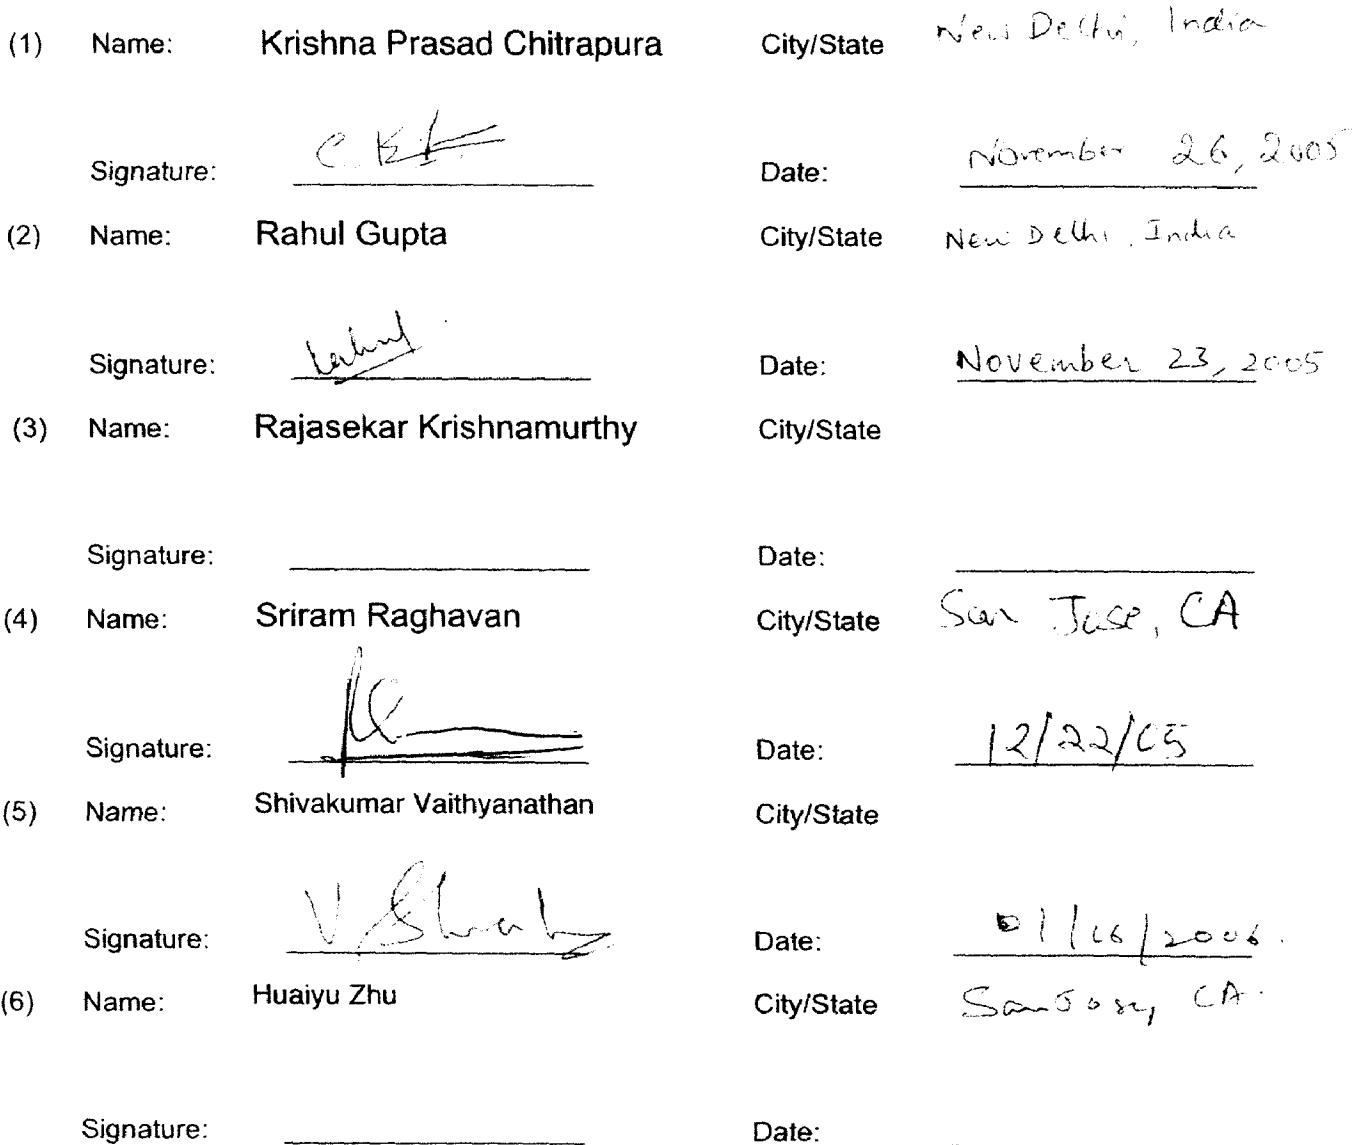 (1) Name: Krishna Prasad Chitrapura City/State New Delhi, India
Signature: Date: November 26, 2005
(2) Name: Rahul Gupta City/State New Delhi, India
Signature: Rahul Date: November 23, 2005
(3) Name: Rajasekar Krishnamurthy City/State
Signature: Date:
(4) Name: Sriram Raghavan City/State San Jose, CA
Signature: Date: 12/22/05
(5) Name: Shivakumar Vaithyanathan City/State
Signature: Date:
(6) Name: Huaiyu Zhu City/State San Jose, CA.
Signature: Date: